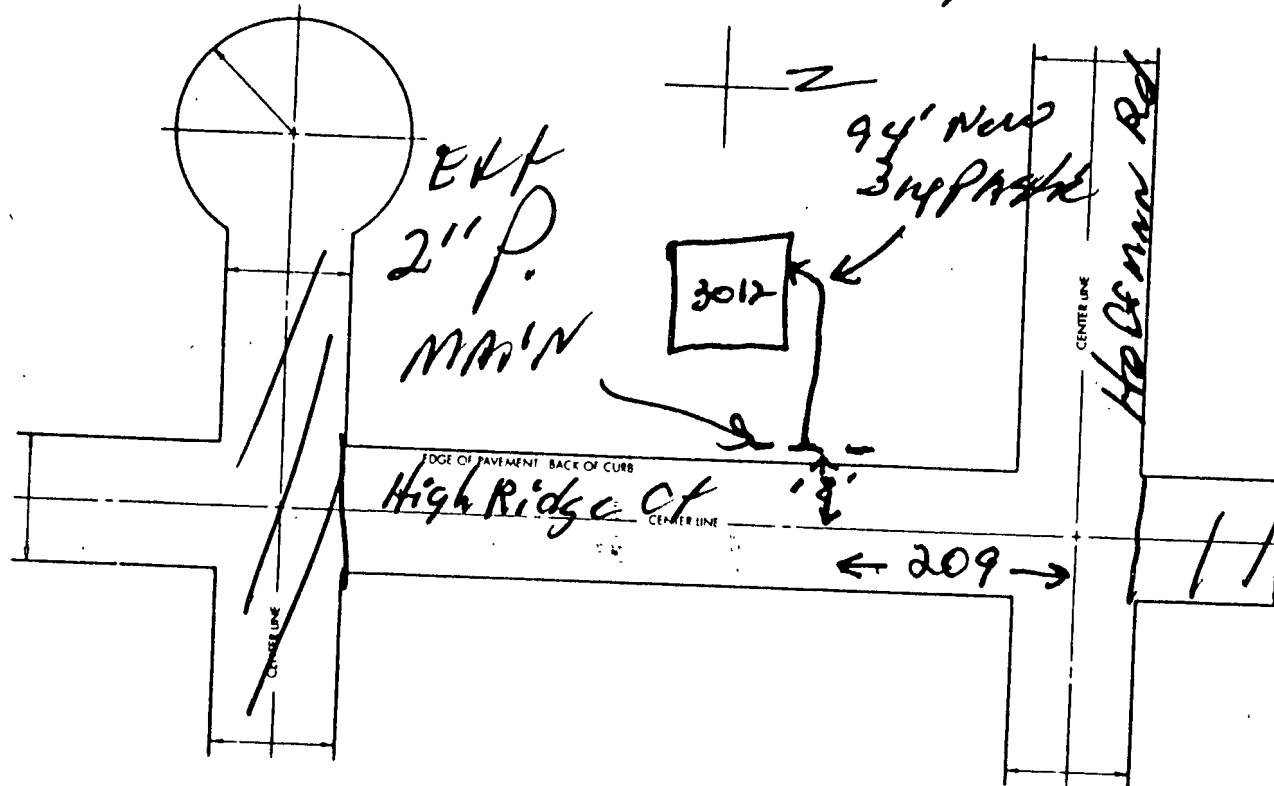 N
94' New
EXT
2" P.
MAIN
3012
CENTER LINE
EDGE OF PAVEMENT BACK OF CURB
High Ridge Ct
CENTER LINE
← 209 →
CENTER LINE